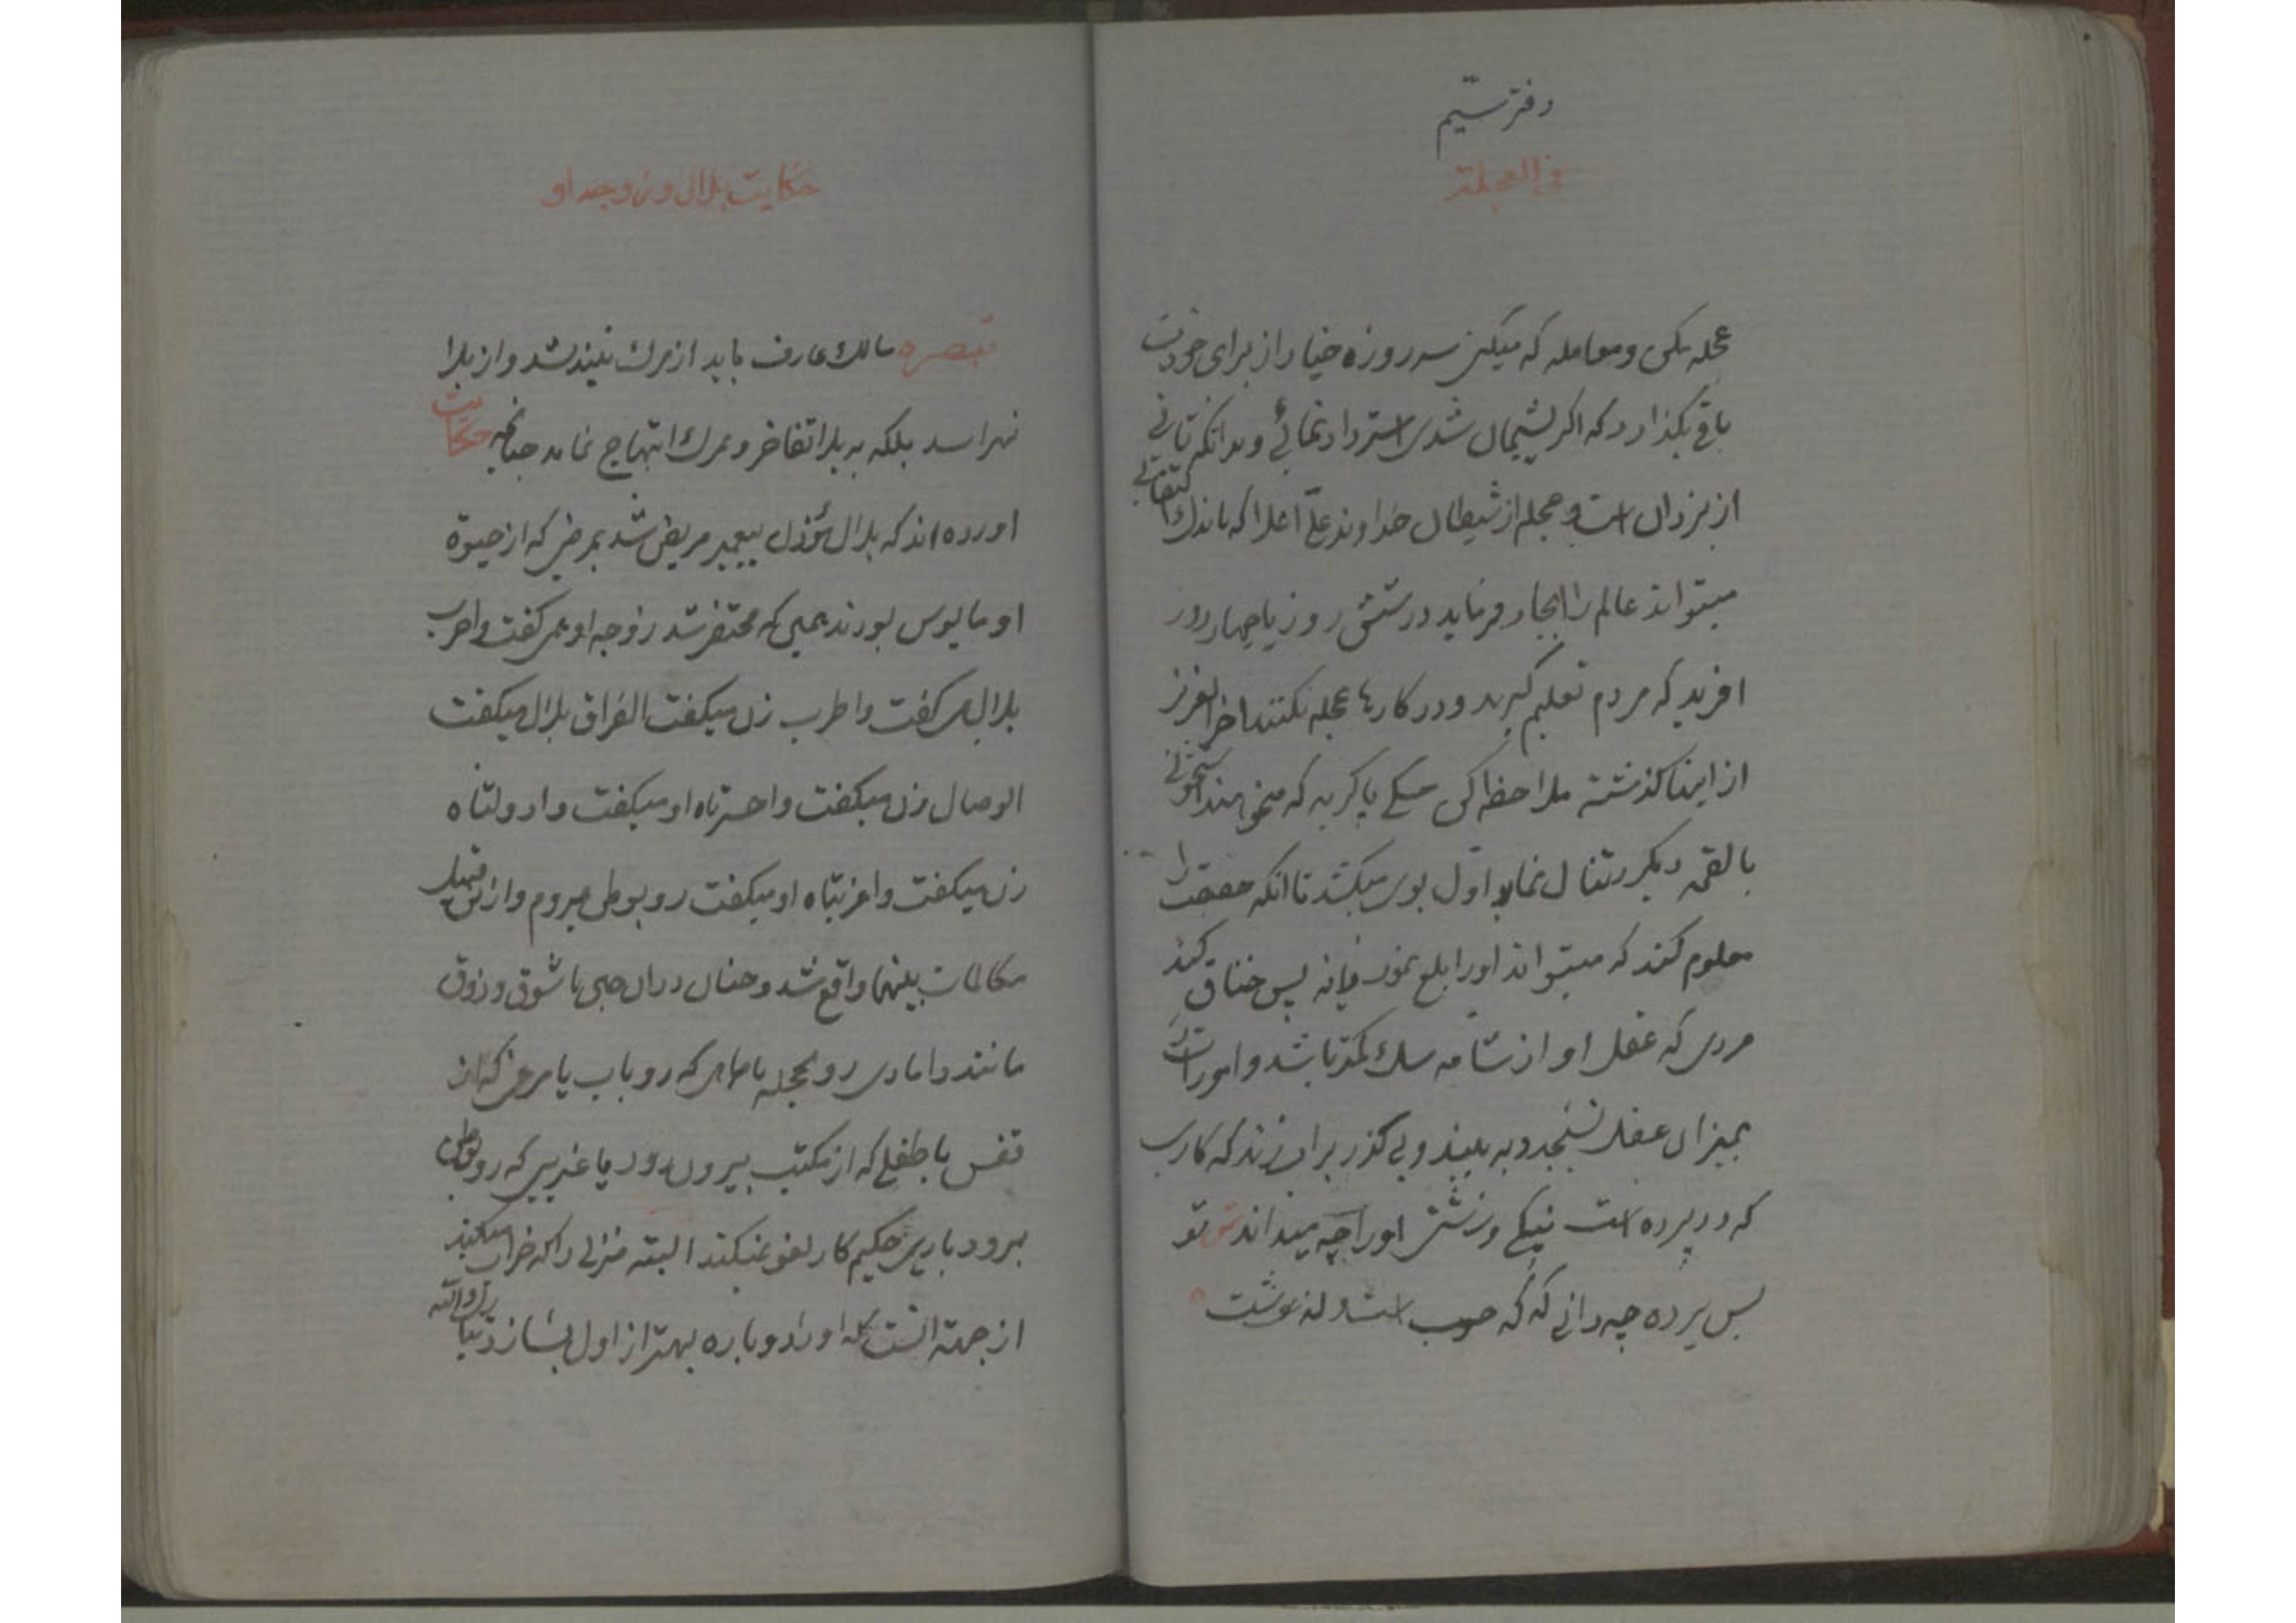 دفتر سیّم
فی العجلة
عجله مکن و معامله که میکنی سه روزه خیار از برای خودت
باقی بگذار که اگر پشیمان شدی استرداد نمائی و بدانکه تانی
از یزدان است و عجله از شیطان خداوند علّی اعلا که باندک التفاتی
میتواند عالم را ایجاد فرماید در شش روز یا چهار روز
افرید که مردم تعلیم گیرند و در کارها عجله نکنند اخر العزیز
از اینها گذشته ملاحظه کن سگی یا گربه که میخواهند استخوانی
یا لقمهٔ دیگر تناول نماید اول بوی میکشد تا انکه حقیقت را
معلوم کند که میتواند اورا بلع نمود فبانه پس خناق کند
مردی که عقل او از شامه سگ کمتر باشد و امورات را
بمیزان عقل نسنجد و به بیند و بی گذر بران زند که کاری
که در پرده است نیکی و زشتی اورا چه میداند تو
پس پرده چه دانی که که خوب است و که زشت
حکایت بلال و زوجه او
تبصره سالک عارف باید از مرگ نیندیشد و از بلا
نهراسد بلکه به بلا تفاخر و بمرگ ابتهاج نماید چنانچه حکایت
اورده اند که بلال مؤذن پیغمبر مریض شد بمرضی که از حیوة
او مایوس بودند همین که محتضر شد زوجه او همی گفت واحرب
بلال می گفت واطرب زن میگفت الفراق بلال میگفت
الوصال زن میگفت واحسرتاه او میگفت وادولتاه
زن میگفت واغربتاه او میگفت رو بوطن میروم و از این قبیل
مکالمات بینهما واقع شد و چنان دران حین با شوق و ذوق
مانند دامادی رو بحجله یا ماهی که رو باب یا مرغی که از
قفس یا طفلی که از مکتب بیرون رود یا غریبی که رو بوطن
برود باری حکیم کار لغو نمیکند البته منزلی را که خراب میکند
از جهة انست که او را دوباره بهتر از اول بسازد